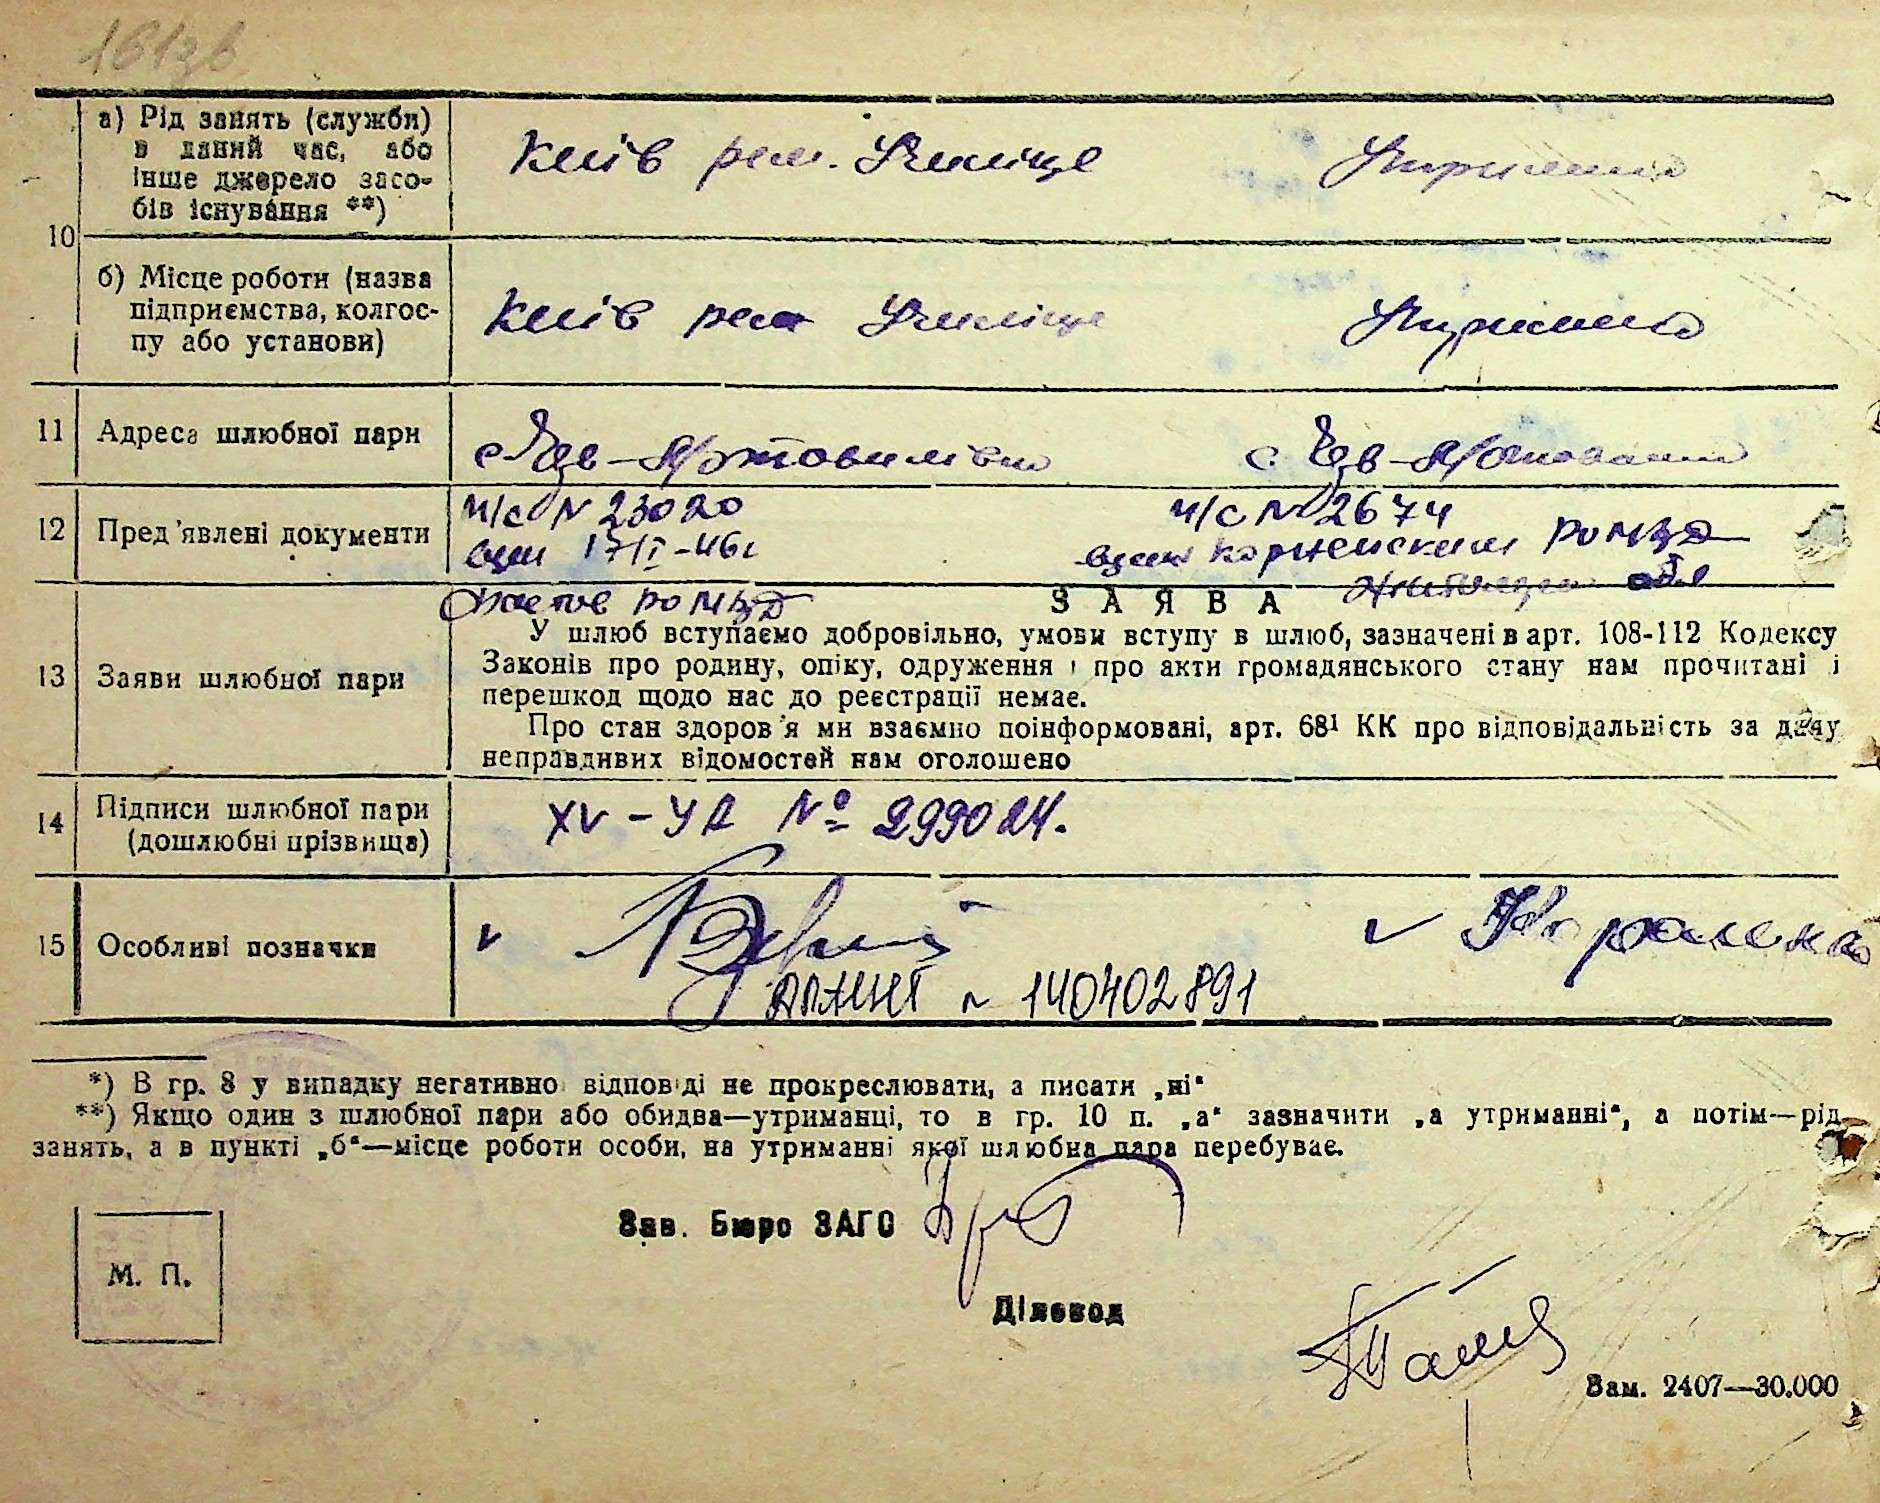 161зв
10
а) Рід занять (служби)
в даний час, або
інше джерело засо-
бів існування **)
Київ рем. Училіще
б) Місце роботи (назва
підприємства, колгос-
пу або установи)
Київ рем Училіще
11
Адреса шлюбної пари
12
Пред'явлені документи
п/с N 23020
п/с N 2674
вдан 17/I-46г
РОМВД
РОМВД
обл
13
Заяви шлюбної пари
ЗАЯВА
У шлюб вступаємо добровільно, умови вступу в шлюб, зазначені в арт. 108-112 Кодексу
Законів про родину, опіку, одруження і про акти громадянського стану нам прочитані і
перешкод щодо нас до реєстрації немає.
Про стан здоров'я ми взаємно поінформовані, арт. 68¹ КК про відповідальність за дачу
неправдивих відомостей нам оголошено
14
Підписи шлюбної пари
(дошлюбні прізвища)
XV-УА № 299024.
15
Особливі позначки
v
v
N 140402891
*) В гр. 8 у випадку негативної відповіді не прокреслювати, а писати „ні“
**) Якщо один з шлюбної пари або обидва—утриманці, то в гр. 10 п. „а“ зазначити „а утриманні“, а потім—рід
занять, а в пункті „б“—місце роботи особи, на утриманні якої шлюбна пара перебуває.
Зав. Бюро ЗАГС
М. П.
Діловод
Зам. 2407—30.000